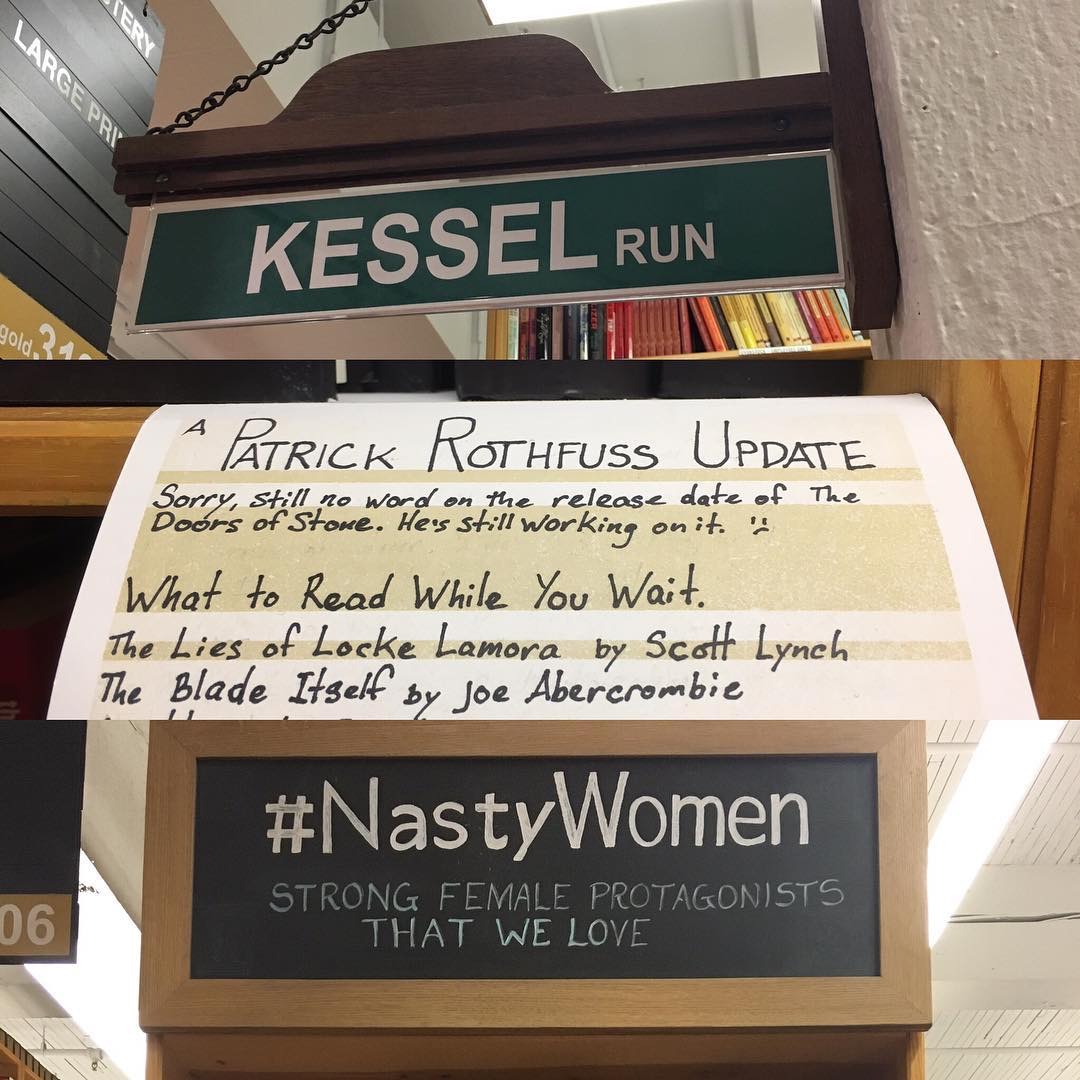 LARGE PRI
KESSEL RUN
gold
A PATRICK ROTHFUSS UPDATE
Sorry, still no word on the release date of The
Doors of Stone. He's still working on it.
What to Read While You Wait.
The Lies of Locke Lamora by Scott Lynch
The Blade Itself by Joe Abercrombie
#NastyWomen
STRONG FEMALE PROTAGONISTS
THAT WE LOVE
06